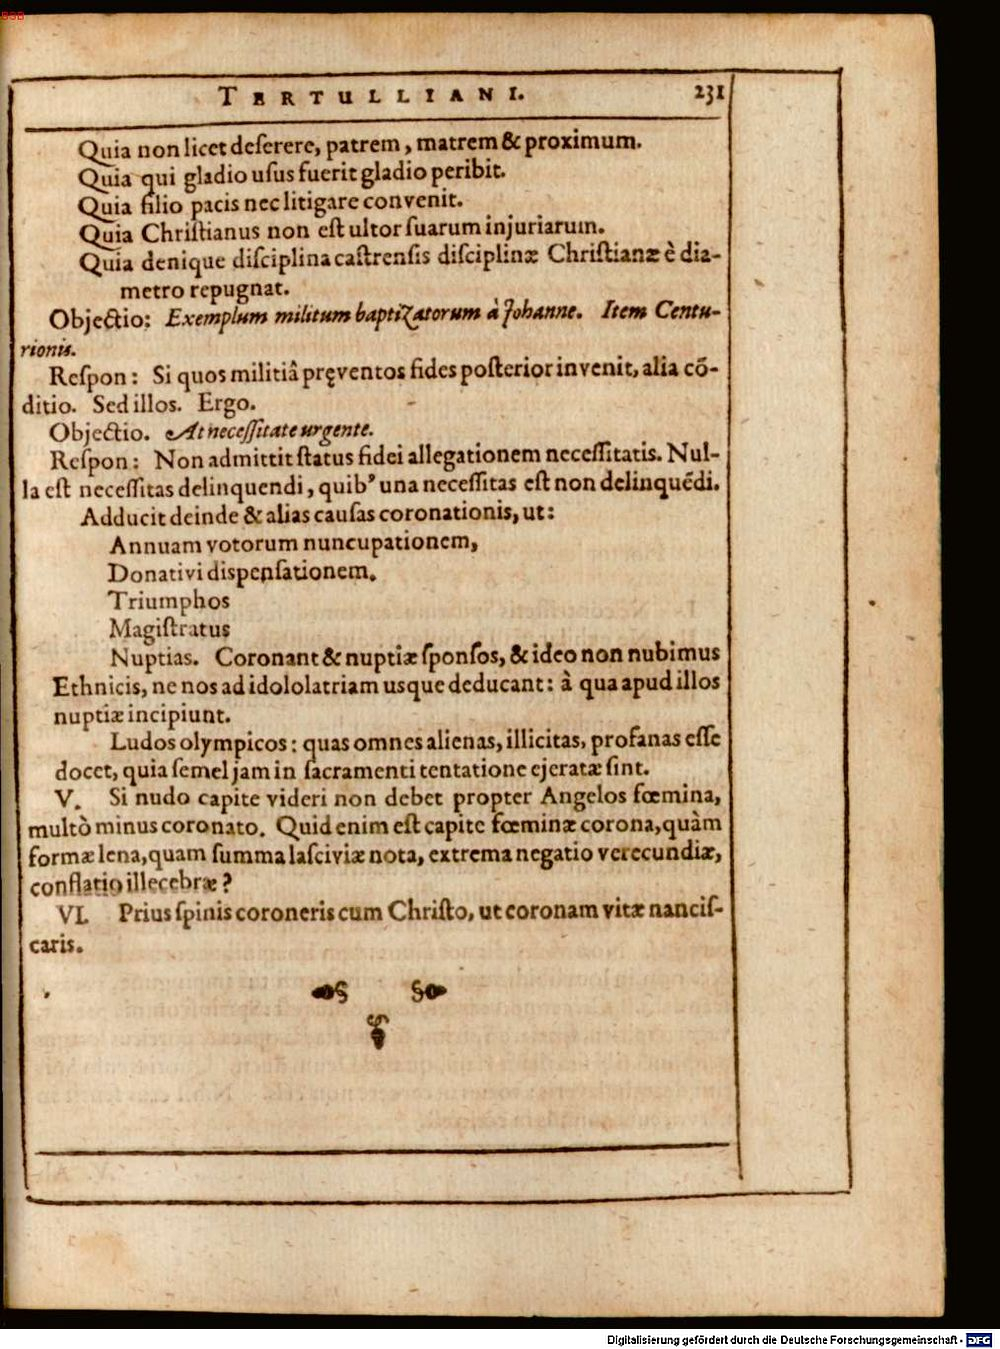 BSB
TERTULLIANI. 231
Quia non licet deſerere, patrem, matrem & proximum.
Quia qui gladio uſus fuerit gladio peribit.
Quia filio pacis nec litigare convenit.
Quia Chriſtianus non eſt ultor ſuarum injuriarum.
Quia denique diſciplina caſtrenſis diſciplinæ Chriſtianæ è dia-
metro repugnat.
Objectio: Exemplum militum baptizatorum à Johanne. Item Centu-
rionis.
Reſpon: Si quos militiâ pręventos fides poſterior invenit, alia cõ-
ditio. Sed illos. Ergo.
Objectio. At neceſſitate urgente.
Reſpon: Non admittit ſtatus fidei allegationem neceſſitatis. Nul-
la eſt neceſſitas delinquendi, quibꝰ una neceſſitas eſt non delinquẽdi.
Adducit deinde & alias cauſas coronationis, ut:
Annuam votorum nuncupationem,
Donativi diſpenſationem.
Triumphos
Magiſtratus
Nuptias. Coronant & nuptiæ ſponſos, & ideo non nubimus
Ethnicis, ne nos ad idololatriam usque deducant: à qua apud illos
nuptiæ incipiunt.
Ludos olympicos: quas omnes alienas, illicitas, profanas eſſe
docet, quia ſemel jam in ſacramenti tentatione ejeratæ ſint.
V. Si nudo capite videri non debet propter Angelos fœmina,
multò minus coronato. Quid enim eſt capite fœminæ corona, quàm
formæ lena, quam ſumma laſciviæ nota, extrema negatio verecundiæ,
conflatio illecebræ?
VI. Prius ſpinis coroneris cum Chriſto, ut coronam vitæ nanciſ-
caris.
Digitalisierung gefördert durch die Deutsche Forschungsgemeinschaft - DFG